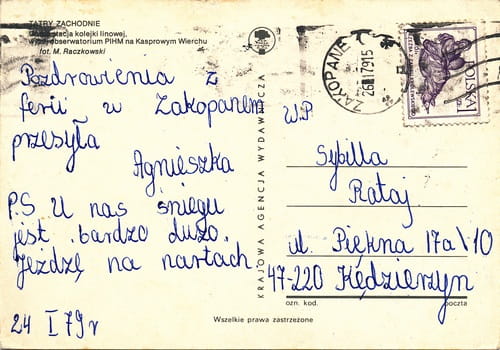 TATRY ZACHODNIE
stacja kolejki linowej,
obserwatorium PIHM na Kasprowym Wierchu
fot. M. Raczkowski
Pozdrowienia z
ferii w Zakopanem
przesyła
Agnieszka
P.S U nas śniegu
jest bardzo dużo.
Jeżdżę na nartach
24 I 79r
KRAJOWA AGENCJA WYDAWNICZA
ZAKOPANE
26.-1.79 15
POLSKA
W.P
Sybilla
Rataj
ul. Piękna 17a\10
47-220 Kędzierzyn
ozn. kod.
poczta
Wszelkie prawa zastrzeżone